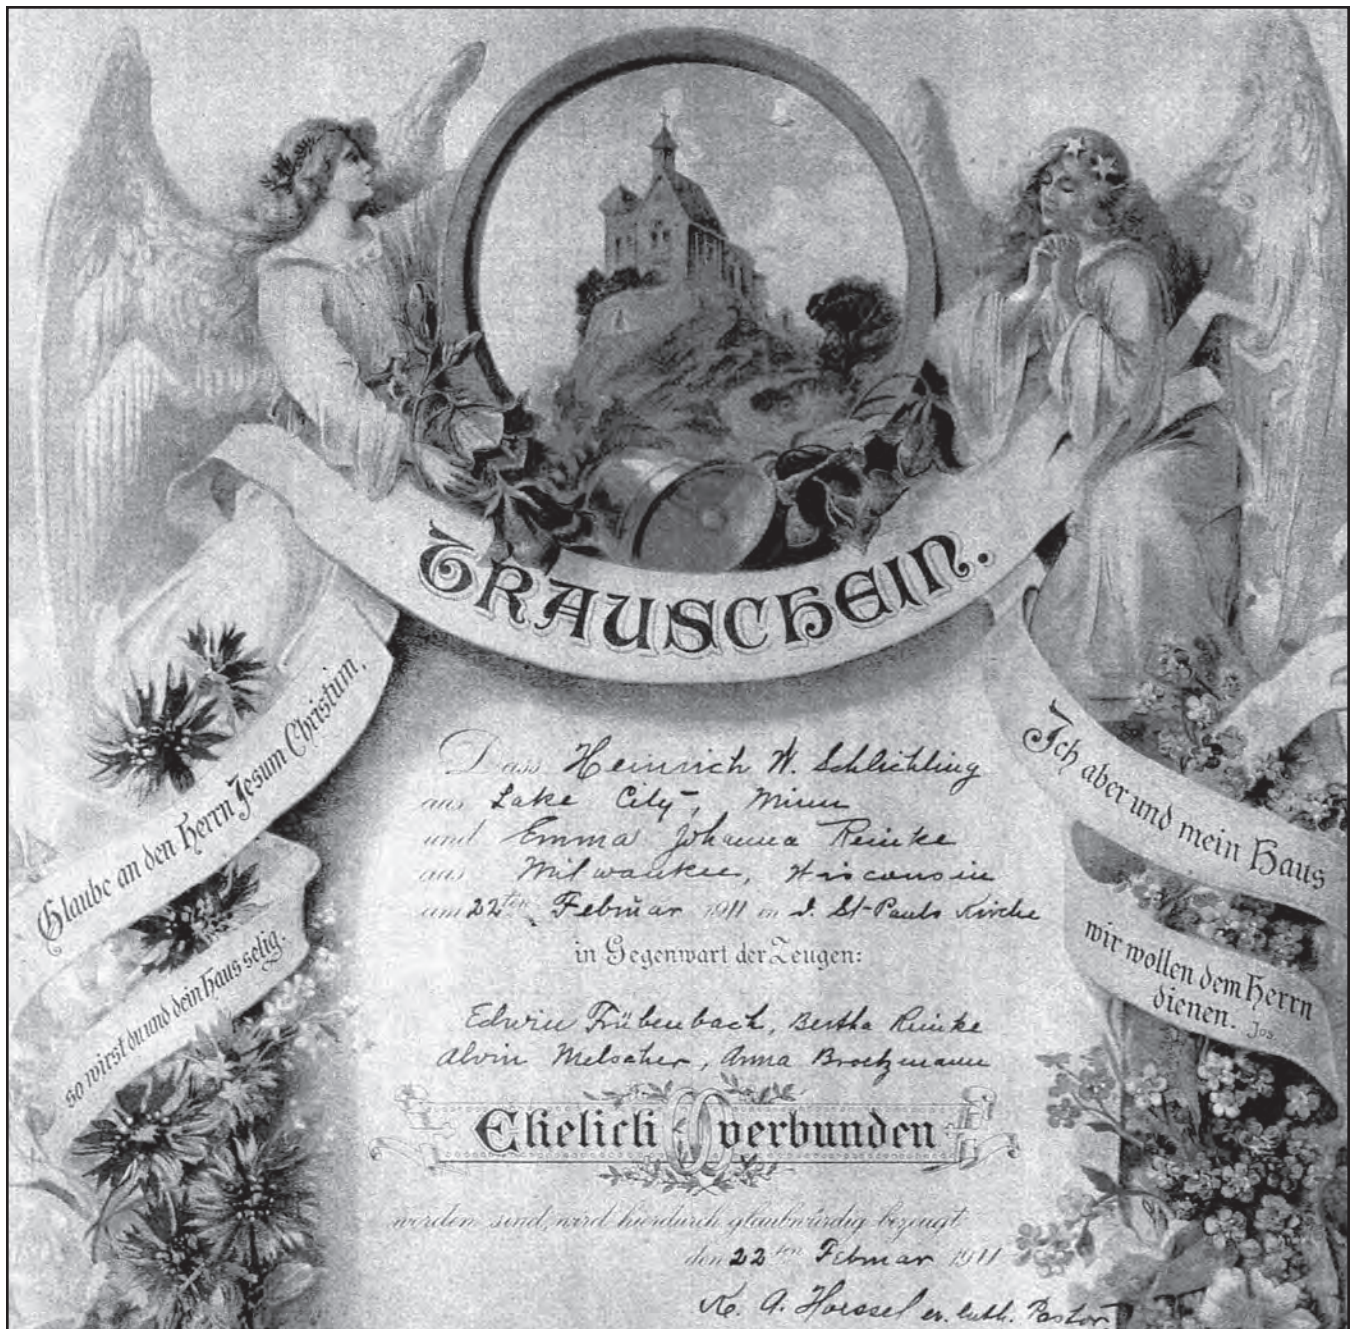 TRAUSCHEIN.
Glaube an den Herrn Jesum Christum,
so wirst du und dein Haus selig.
Ich aber und mein Haus
wir wollen dem Herrn
dienen. Jos.
Dass Heinrich W. Schlichting
aus Lake City, Minn
und Emma Johanna Reinke
aus Milwaukee, Wisconsin
am 22ten Februar 1911 in d. St Pauls Kirche
in Gegenwart der Zeugen:
Edwin Trübenbach, Bertha Reinke
Alvin Melscher, Anna Broetzmann
Ehelich verbunden
worden sind, wird hierdurch glaubwürdig bezeugt
den 22ten Februar 1911
A. ev. luth. Pastor